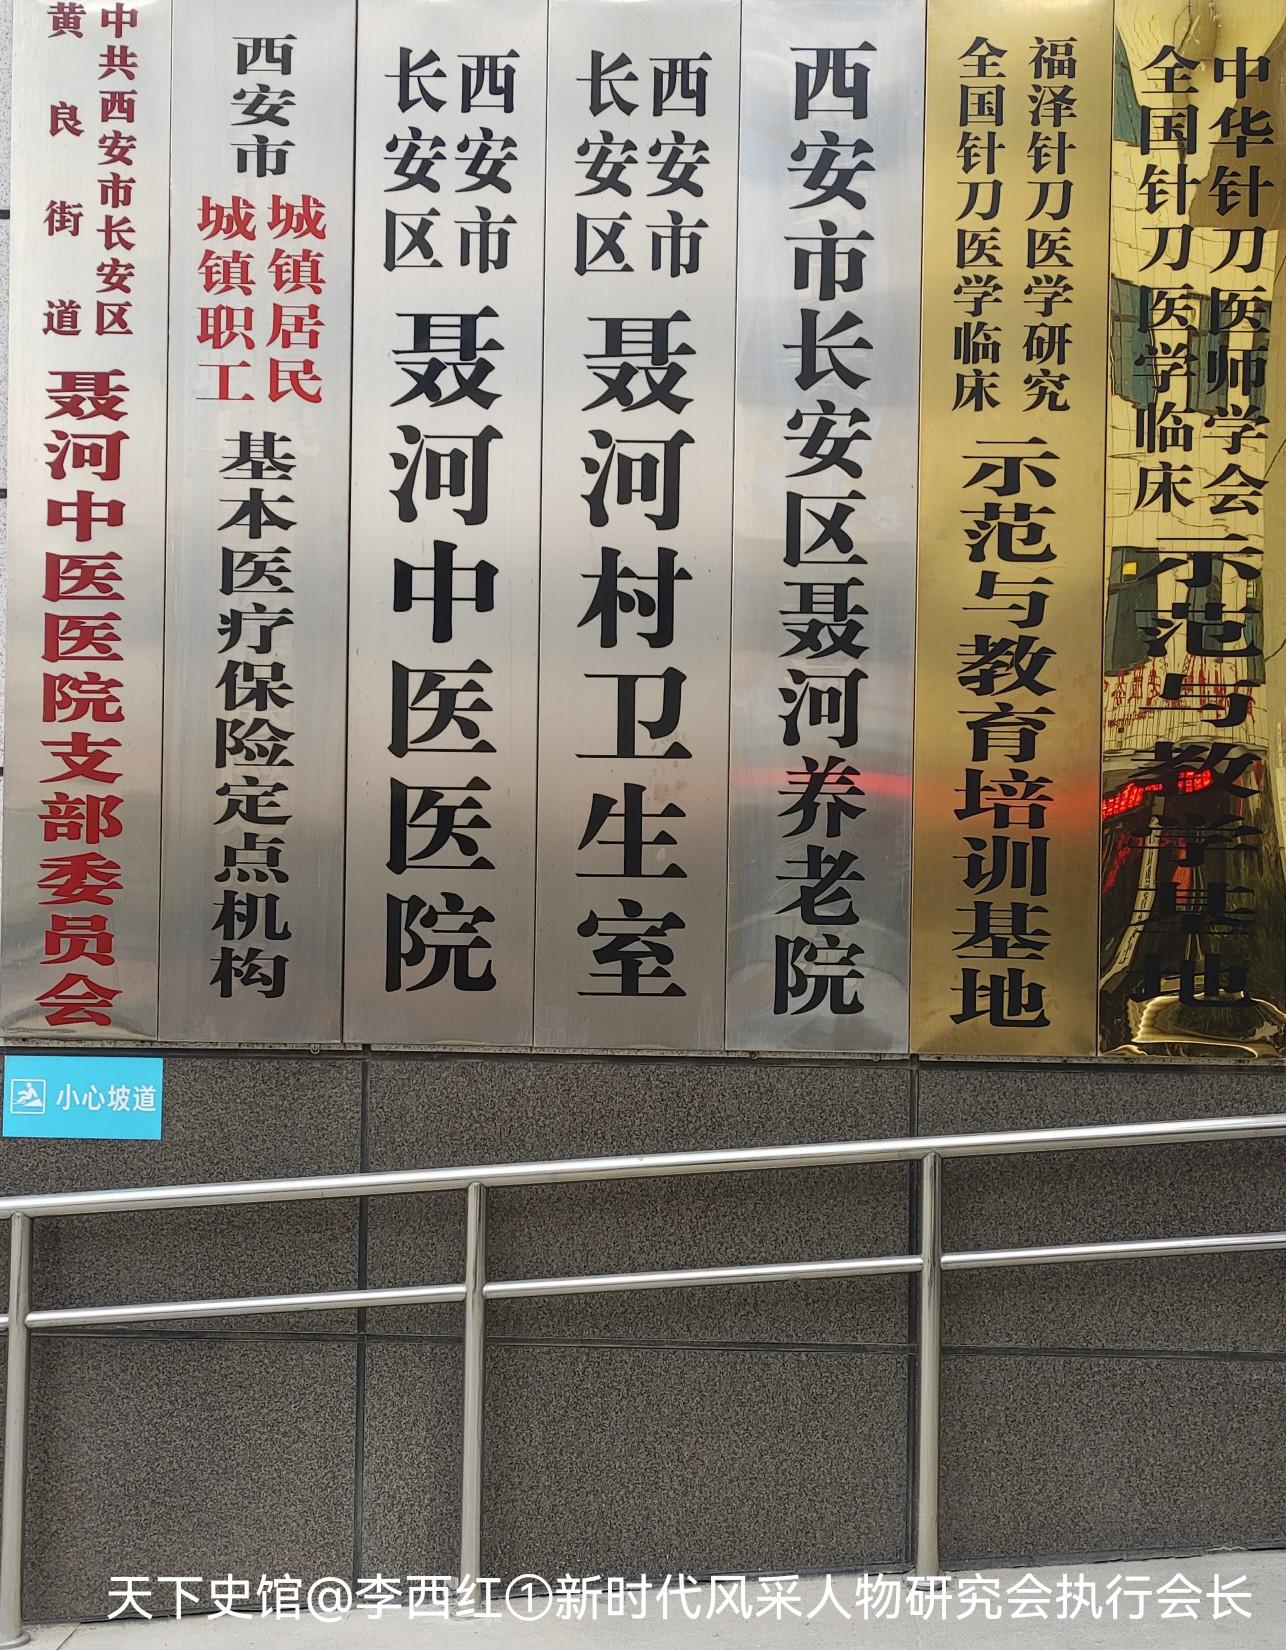 中共西安市长安区
黄良街道
聂河中医医院支部委员会
西安市
城镇居民
城镇职工
基本医疗保险定点机构
西安市
长安区
聂河中医医院
西安市
长安区
聂河村卫生室
西安市长安区聂河养老院
福泽针刀医学研究
全国针刀医学临床
示范与教育培训基地
中华针刀医师学会
全国针刀医学临床
示范与教学基地
小心坡道
天下史馆@李西红①新时代风采人物研究会执行会长